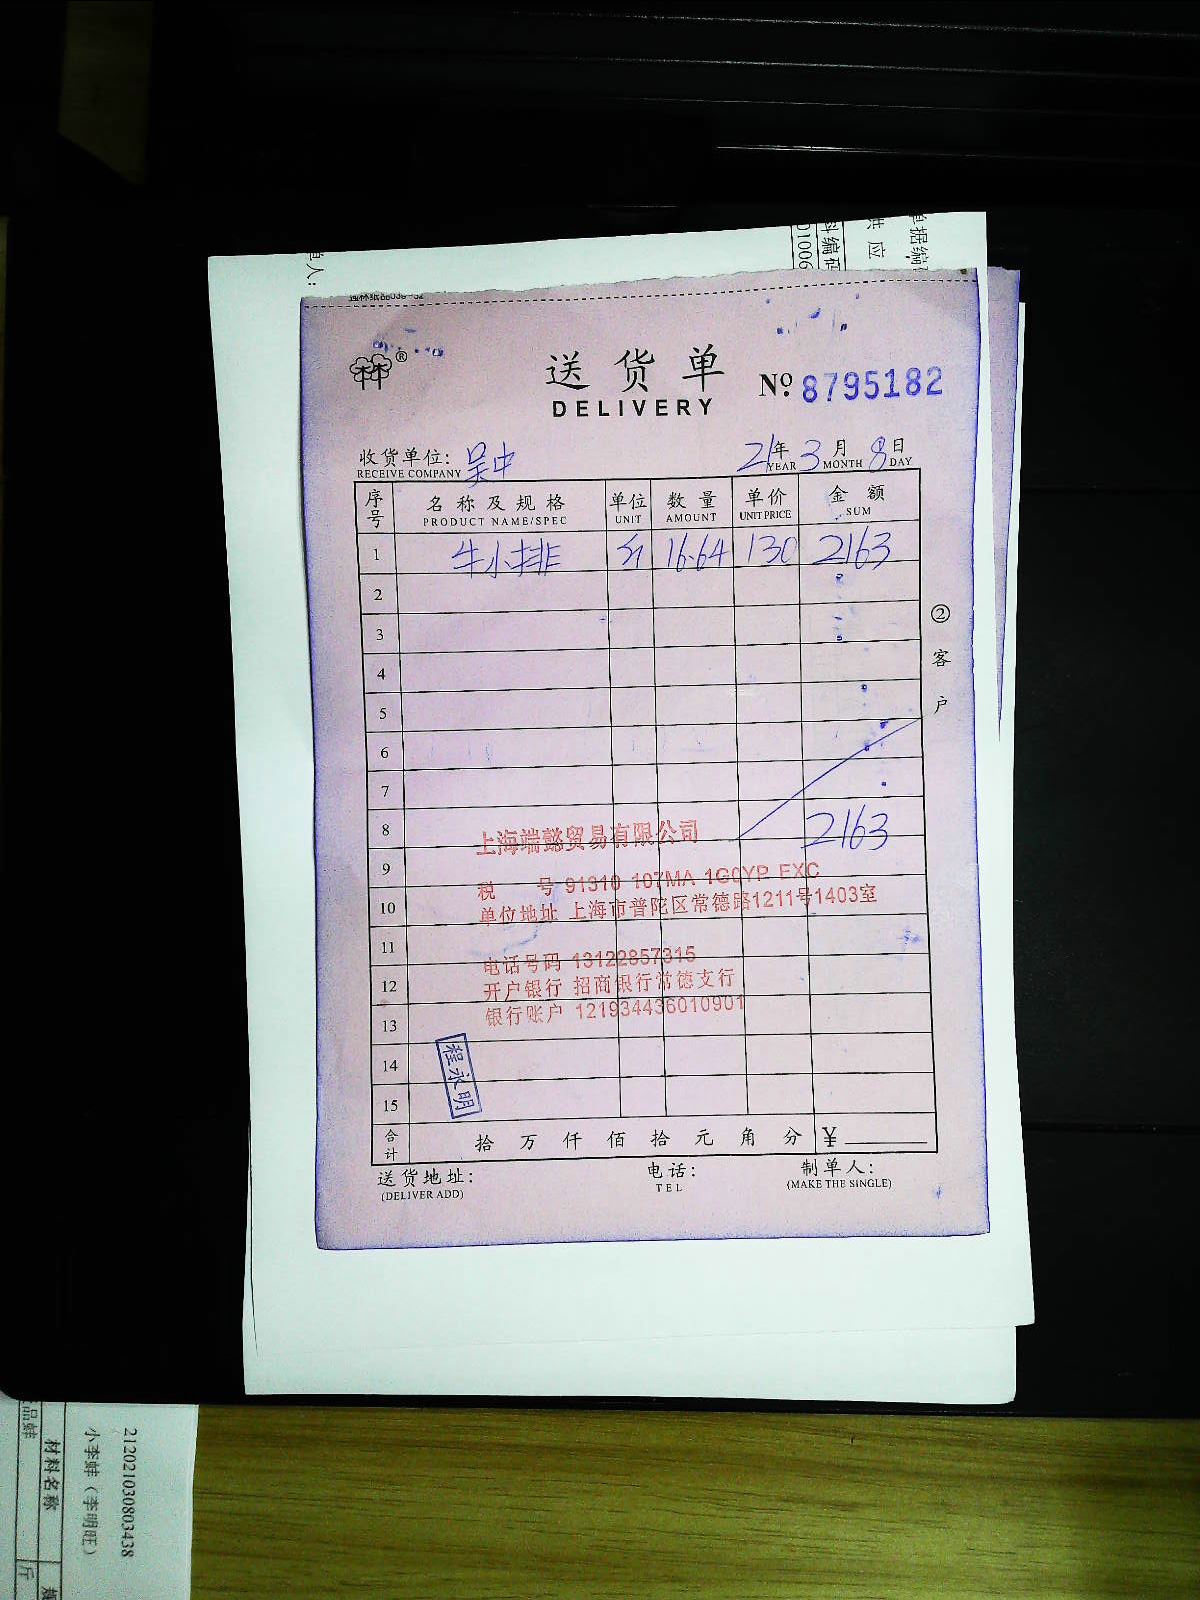 单据编
供应
料编码
01006
单人:
送货单
DELIVERY
№ 8795182
收货单位: 吴中
RECEIVE COMPANY
21年 3月 8日
YEAR MONTH DAY
序号 名称及规格 单位 数量 单价 金额
PRODUCT NAME/SPEC UNIT AMOUNT UNIT PRICE SUM
1 牛小排 斤 16.64 130 2163
2
3
4
5
6
7
8 2163
9
10
11
12
13
14
15
②客户
上海端懿贸易有限公司
税 号 91310 107MA 1G0YP EXC
单位地址 上海市普陀区常德路1211号1403室
电话号码 13122857315
开户银行 招商银行常德支行
银行账户 121934436010901
程永明
合计 拾 万 仟 佰 拾 元 角 分 ¥
送货地址: 电话: 制单人:
(DELIVER ADD) TEL (MAKE THE SINGLE)
212021030803438
小李蚌（李明旺）
材料名称
品蚌
斤